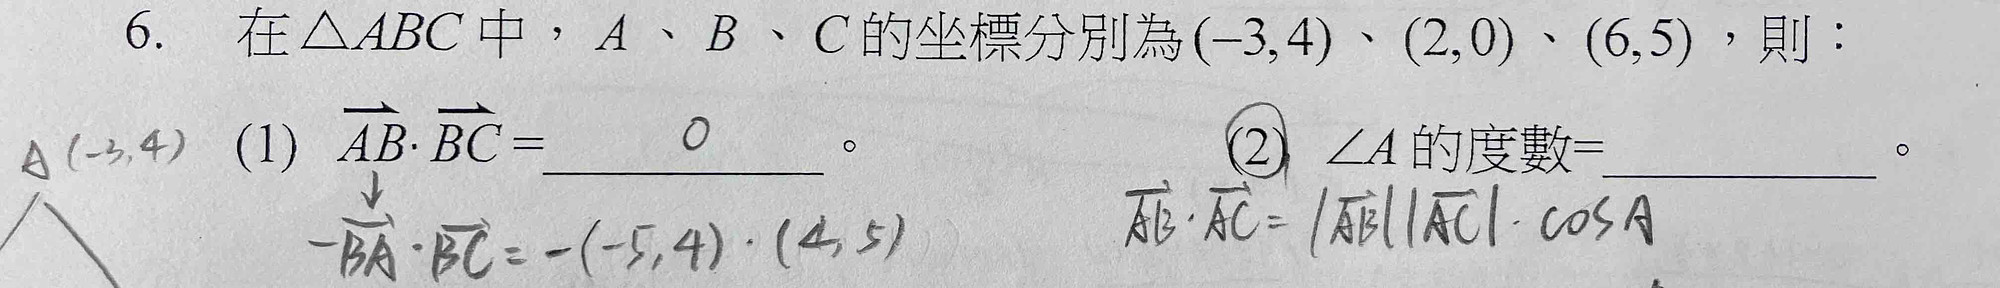 6. 在△ABC中，A、B、C的坐標分別為(−3,4)、(2,0)、(6,5)，則：
A(-3,4)
(1) AB·BC= 0 。
(2) ∠A的度數=＿＿＿＿。
↓
-BA·BC=-(-5,4)·(4,5)
AB·AC=|AB||AC|·cosA